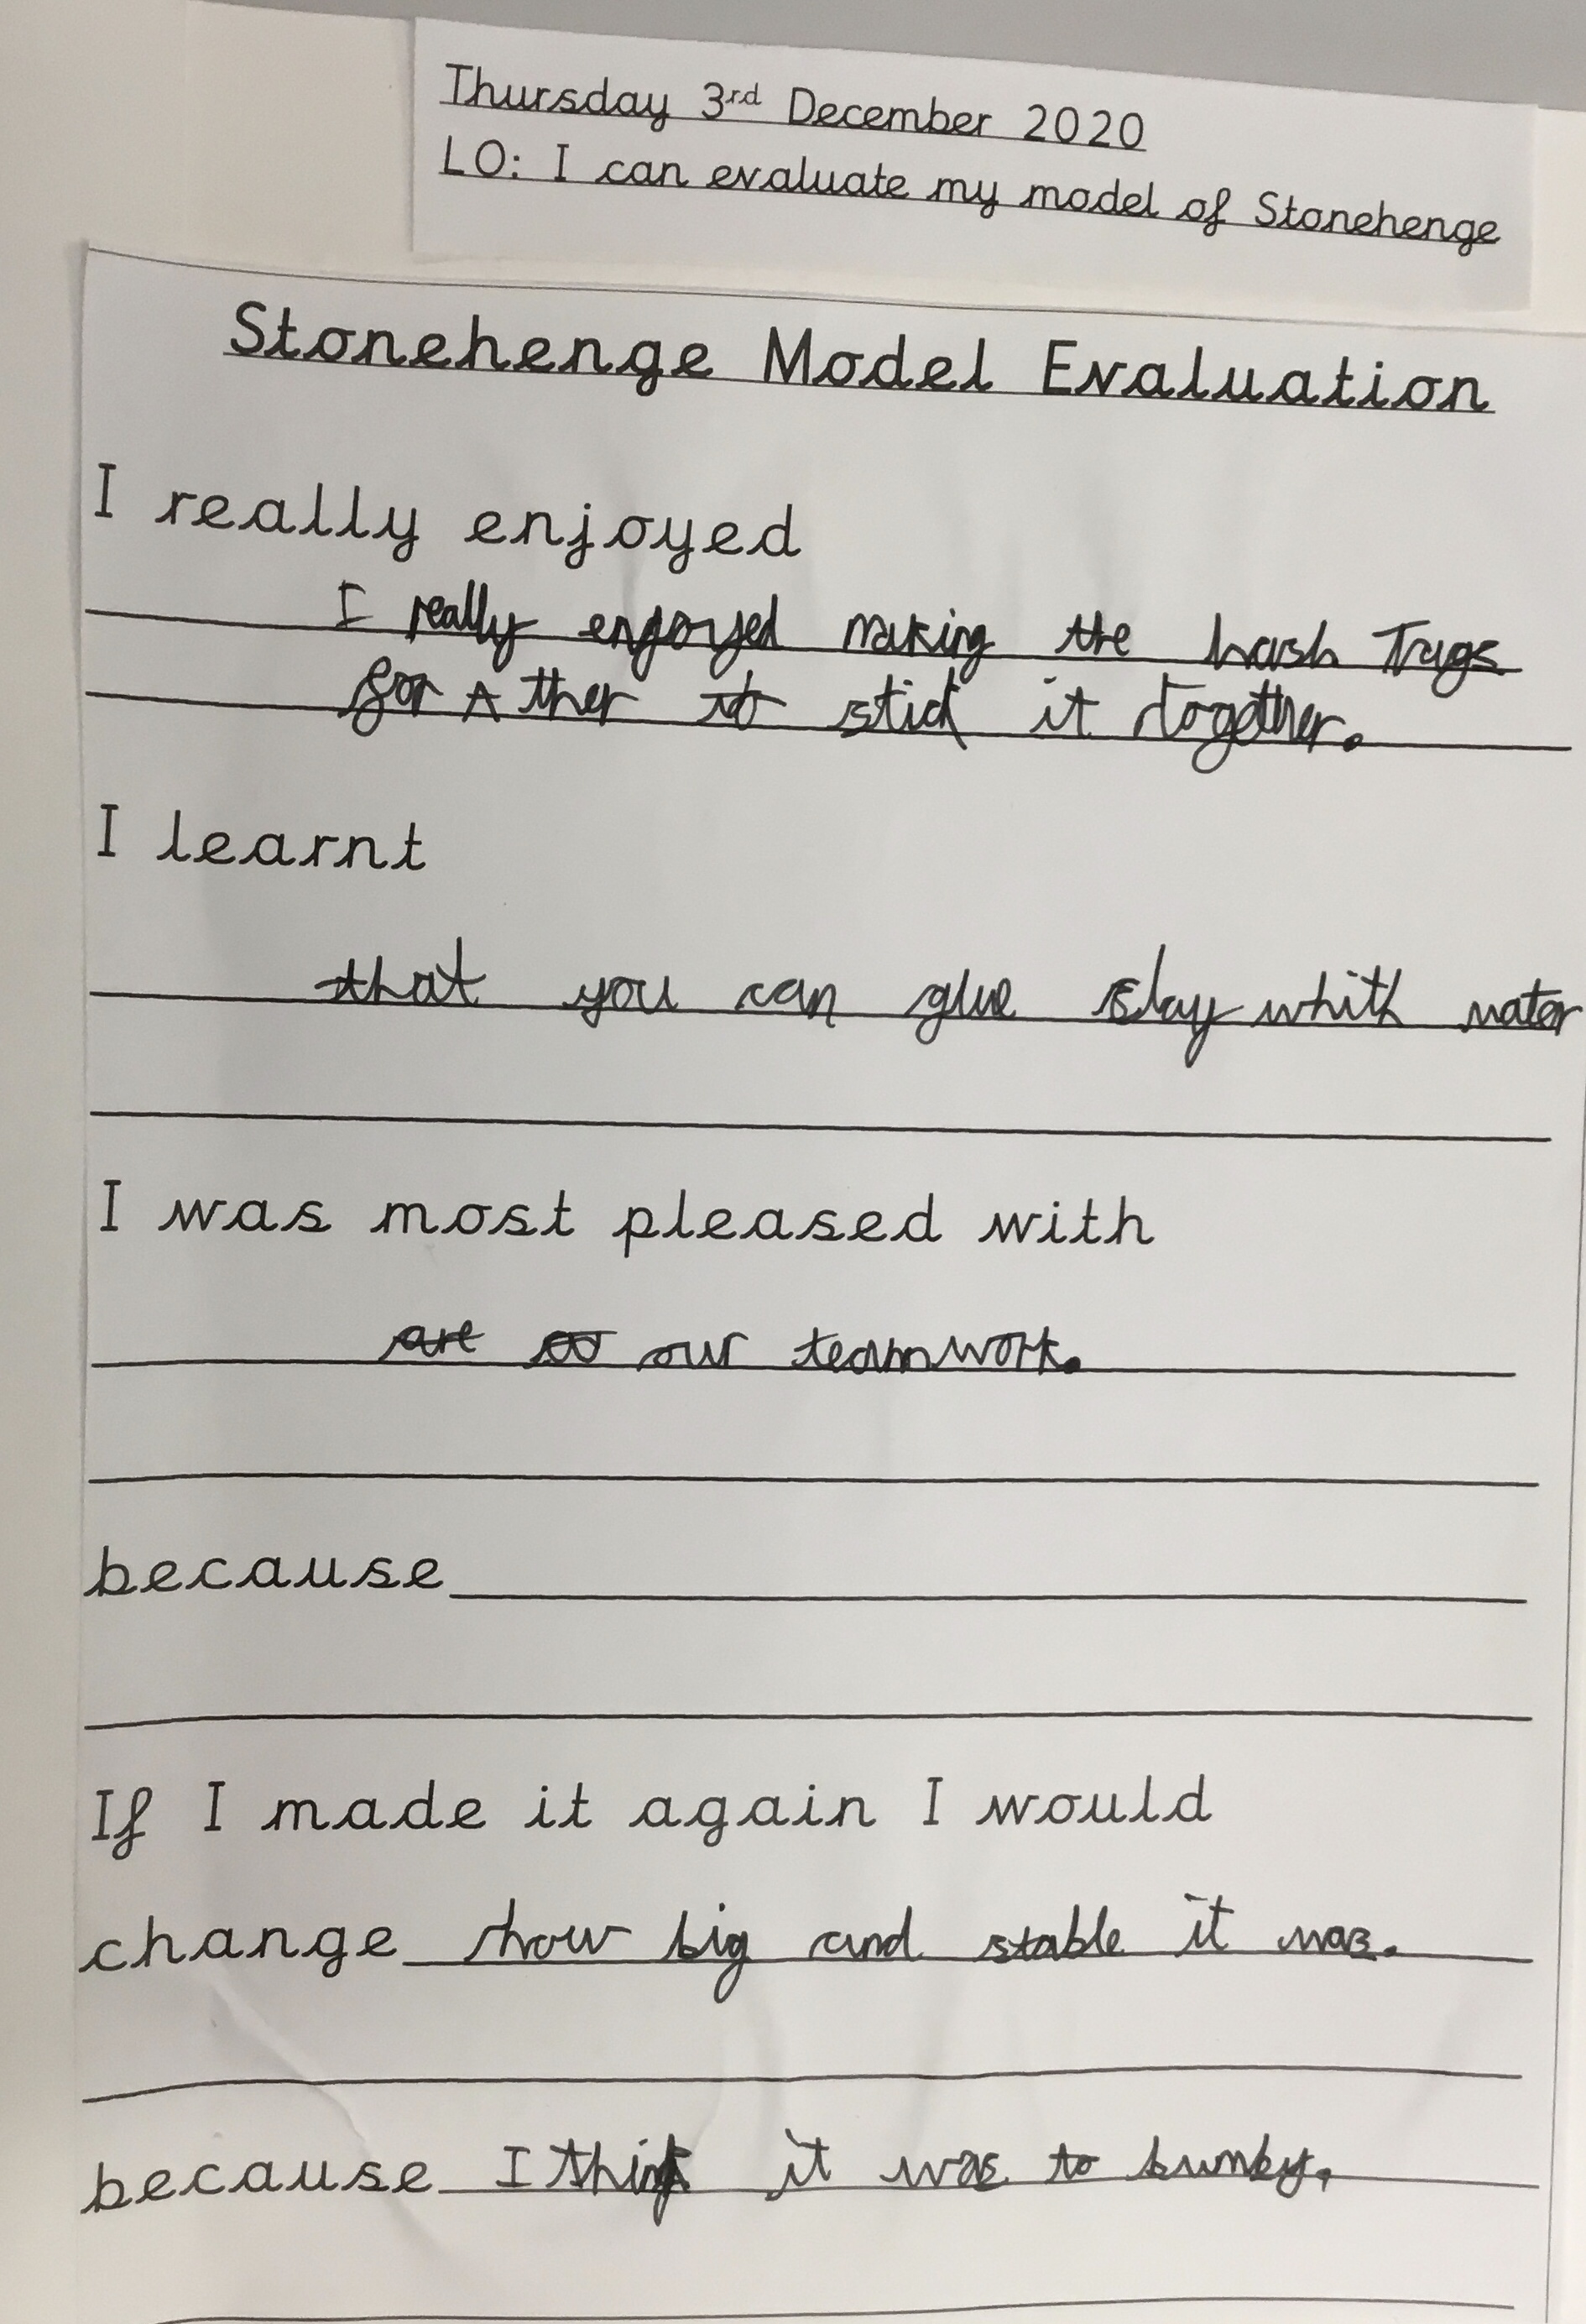 Thursday 3rd December 2020
LO: I can evaluate my model of Stonehenge
Stonehenge Model Evaluation
I really enjoyed
I really engoyed making the hash Tags
for A ther to stick it together.
I learnt
that you can glue slay whith water
I was most pleased with
our teamwork.
because
If I made it again I would
change how big and stable it was.
because I think it was to bumby.